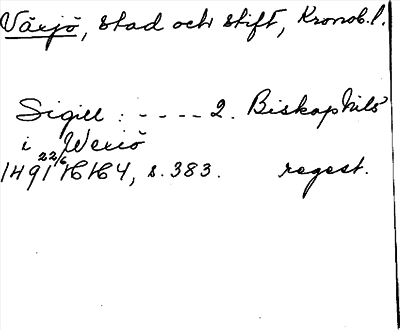 Växjö, stad och stift, Kronob.l.
Sigill : - - - - 2. Biskop Nils
i Wexiö
1491 22/6 HH 4, s. 383. regest.